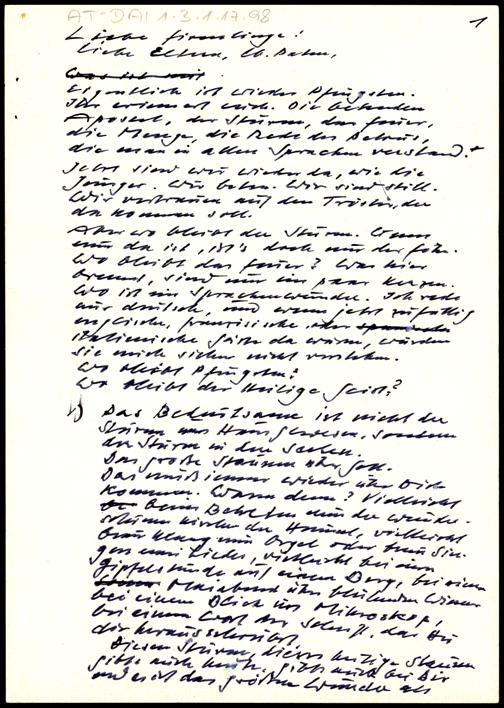 AT-DAI 1.3.1.17.98
1
Liebe Firmlinge!
Liebe Eltern, lb. Paten,
Was ist mit
Eigentlich ist wieder Pfingsten.
Ihr erinnert euch. Die betenden
Apostel, der Sturm, das Feuer,
die Menge, die Rede des Petrus,
die man in allen Sprachen verstand.
Jetzt sind wir wieder da, wie die
Jünger. Wir beten. Wir sind still.
Wir vertrauen auf den Tröster, der
da kommen soll.
Aber wo bleibt der Sturm. Wenn
nur da ist, ist's doch nur der Föhn.
Wo bleibt das Feuer? Was hier
brennt, sind nur ein paar Kerzen.
Wo ist ein Sprachenwunder. Ich rede
nur deutsch, und wenn jetzt zufällig
englische, französische oder
italienische Gäste da wären, würden
sie mich sicher nicht verstehen.
Wo bleibt Pfingsten?
Wo bleibt der Heilige Geist?
1) Das Bedeutsame ist nicht der
Sturm ums Haus gewesen, sondern
der Sturm in den Seelen.
Das große Staunen über Gott.
Das muß immer wieder über Dich
kommen. Wann denn? Vielleicht
beim Betrachten der wunder-
schönen Kirche der Himmel, vielleicht
beim Klang einer Orgel oder beim Sin-
gen eines Liedes, vielleicht bei einer
Gipfelstunde auf einem Berg, bei einem
Maiabend über blühenden Wiesen
bei einem Blick ins Mikroskop,
bei einem Wort der Schrift, das Du
dir herausschreibst.
Diesen Sturm, dieses heilige Staunen
gibts auch heute, gibts auch bei Dir
und es ist das größere Wunder als